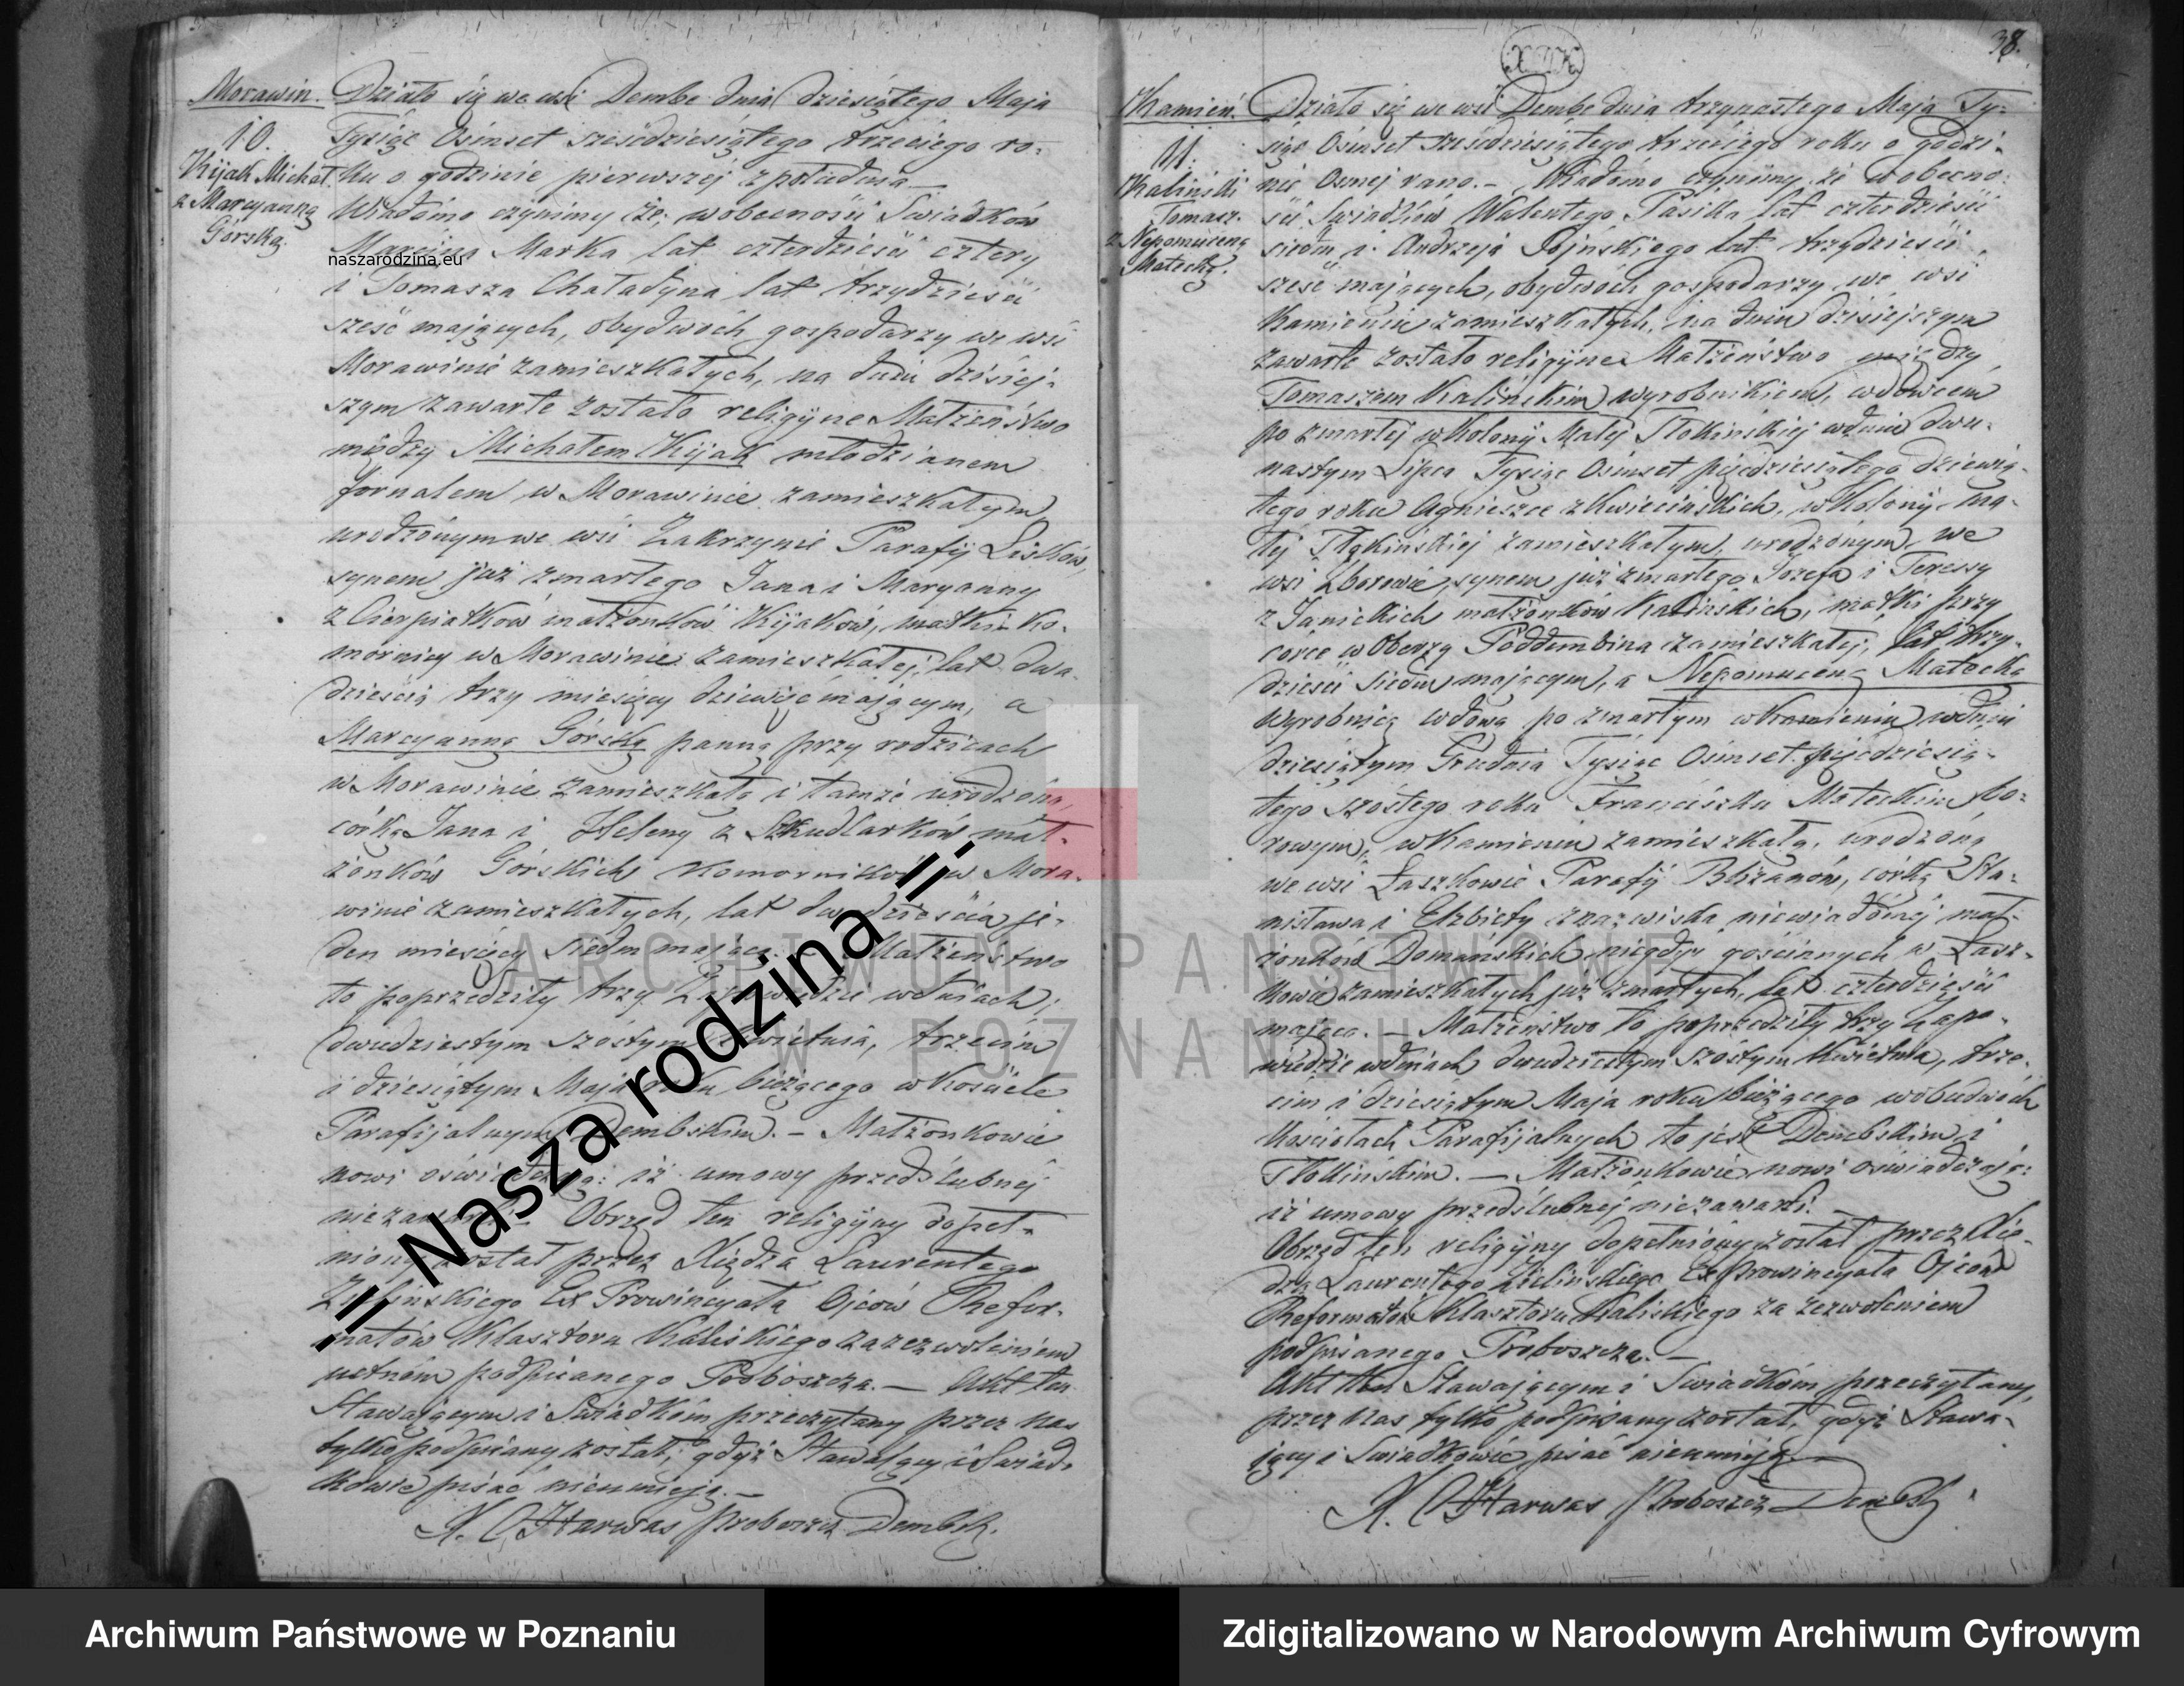 Morawin.
10.
Kijak Michał
z Maryanną
Górską.
Działo się we wsi Dembe dnia dziesiątego Maja
Tysiąc Ośmset sześćdziesiątego trzeciego ro-
ku o godzinie pierwszej z południa —
Wiadomo czyniemy że, w obecności Świadków
Marka lat czterdzieści cztery
i Tomasza Chaładyna lat trzydzieści
sześć mających, obydwóch gospodarzy we wsi
Morawinie zamieszkałych, na dniu dzisiej-
szym zawarte zostało religijne Małżeństwo
między Michałem Kijak młodzianem
fornalem w Morawinie zamieszkałym
urodzonym we wsi Zakrzynie Parafij Lisków,
synem już zmarłego Jana i Maryanny
z Cierpiatków małżonków Kijaków, matki ko-
mornicy w Morawinie zamieszkałej, lat dwa-
dzieścia trzy miesięcy dziewięć mającym, a
Marcyanną Górską panną przy rodzicach
w Morawinie zamieszkałą i tamże urodzoną,
córką Jana i Heleny z Szkudlarków mał-
żonków Górskich komorników w Mora-
winie zamieszkałych, lat dwadzieścia je-
den miesięcy siedm mającą. Małżeństwo
to poprzedziły trzy Zapowiedzie w dniach;
dwudziestym szóstym Kwietnia, trzecim
i dziesiątym Maja roku bieżącego w Kościele
Parafijalnym Dembskim. — Małżonkowie
nowi oświadczają: iż umowy przedślubnej
nie zawarli. Obrzęd ten religijny dopeł-
niony został przez Xiędza Laurentego
Zielinskiego Ex Prowincyała Ojców Refor-
matów Klasztoru Kaliskiego za zezwoleniem
ustnem podpisanego Proboszcza. — Akt ten
Stawającym i Świadkom przeczytany przez nas
tylko podpisany został, gdyż Stawający i Świad-
kowie pisać nieumieją. —
X. Harwas Proboszcz Dembsk.
38.
Kamień.
11.
Kaliński
Tomasz.
z Nepomuceną
Małecką.
Działo się we wsi Dembe dnia trzynastego Maja Ty-
siąc Ośmset sześćdziesiątego trzeciego roku o godzi-
nie ósmej rano. — Wiadomo czyniemy, że w obecno-
ści Świadków Walentego Pasika lat czterdzieści
siedm i Andrzeja lat trzydzieści
sześć mających, obydwóch gospodarzy we wsi
Kamieniu zamieszkałych, na dniu dzisiejszym
zawarte zostało religijne Małżeństwo między
Tomaszem Kalińskim wyrobnikiem, wdowcem
po zmarłej w kolonij Małej Tłokińskiej w dniu dwu-
nastym Lipca Tysiąc Ośmset pięćdziesiątego dziewią-
tego roku Agnieszce z Kwiecińskich, w kolonij ma-
łej Tłokińskiej zamieszkałym, urodzonym we
wsi Zborowie, synem już zmarłego Józefa i Teressy
z Janickich małżonków Kalińskich, matki przy
córce w Oberzy Poddembina zamieszkałej, lat trzy-
dzieści siedm mającym, a Nepomuceną Małecką
wyrobnicą wdową po zmarłym w Kamieniu w dniu
dziesiątym Grudnia Tysiąc Ośmset pięćdziesią-
tego szóstego roku Franciszku Małeckim bo-
rowym, w Kamieniu zamieszkałą, urodzoną
we wsi Łaszkowie Parafij Blizanów, córką Sta-
nisława i Elżbiety z nazwiska niewiadomej mał-
żonków Domańskich niegdyś gościnnych w Łasz-
kowie zamieszkałych już zmarłych, lat czterdzieści
mającą. — Małżeństwo to poprzedziły trzy Zapo-
wiedzie w dniach dwudziestym szóstym Kwietnia, trze-
cim i dziesiątym Maja roku bieżącego w obudwóch
Kościołach Parafijalnych to jest Dembskim i
Tłokińskim. — Małżonkowie nowi oświadczają:
iż umowy przedślubnej nie zawarli. —
Obrzęd ten religijny dopełniony został przez Xię-
dza Laurentego Zielińskiego Ex Prowincyała Ojców
Reformatów Klasztoru Kaliskiego za zezwoleniem
podpisanego Proboszcza. —
Akt ten Stawającym i Świadkom przeczytany,
przez nas tylko podpisany został, gdyż Stawa-
jący i Świadkowie pisać nieumieją. —
X. Harwas Proboszcz Dembsk.
naszarodzina.eu
= Nasza rodzina =
ARCHIWUM PAŃSTWOWE
W POZNANIU
Archiwum Państwowe w Poznaniu
Zdigitalizowano w Narodowym Archiwum Cyfrowym